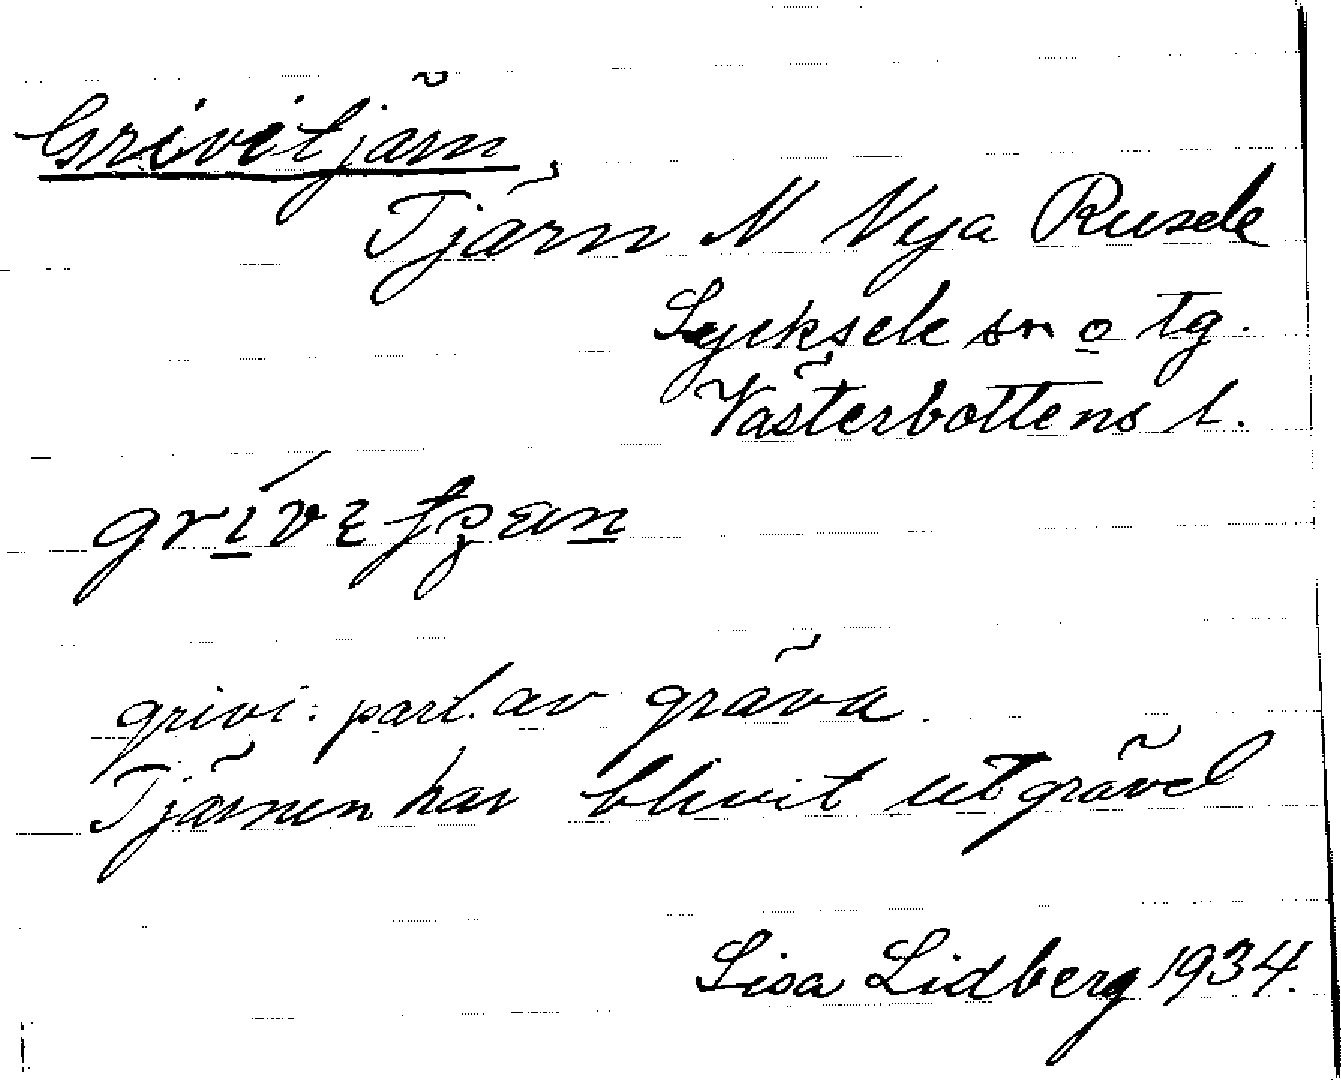 Grivitjärn,
Tjärn N Nya Rusele
Lycksele sn o tg.
Västerbottens l.
grivi: part. av gräva.
Tjärnen har blivit utgrävd
Lisa Lidberg 1934.